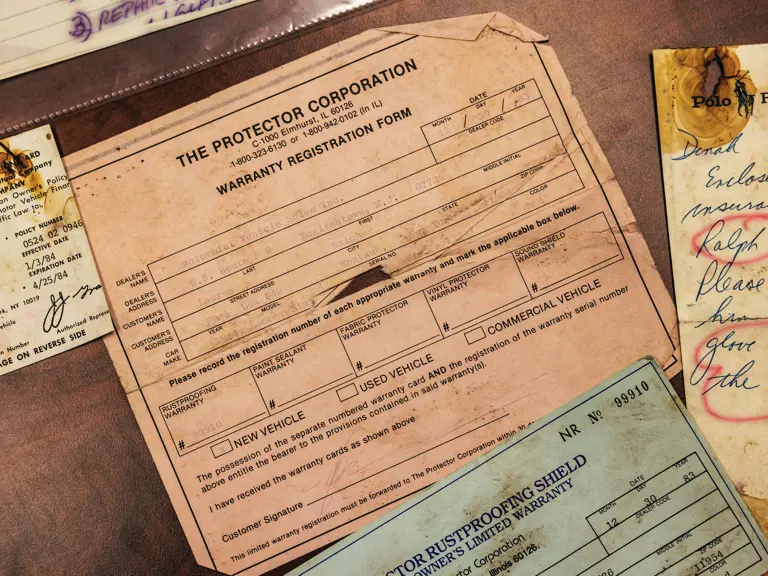 3) REPAIR
THE PROTECTOR CORPORATION
C-1000 Elmhurst, IL 60126
1-800-323-6130 or 1-800-942-0102 (In IL)
WARRANTY REGISTRATION FORM
DATE
MONTH DAY YEAR
DEALER CODE
DEALER'S NAME
DEALER'S ADDRESS
LAST FIRST MIDDLE INITIAL
CUSTOMER'S NAME
STREET ADDRESS CITY STATE ZIP CODE
CUSTOMER'S ADDRESS
YEAR MODEL SERIAL NO. COLOR
CAR MAKE
Please record the registration number of each appropriate warranty and mark the applicable box below.
RUSTPROOFING WARRANTY
# 99910
PAINT SEALANT WARRANTY
#
FABRIC PROTECTOR WARRANTY
#
VINYL PROTECTOR WARRANTY
#
SOUND SHIELD WARRANTY
#
NEW VEHICLE USED VEHICLE COMMERCIAL VEHICLE
The possession of the separate numbered warranty card AND the registration of the warranty serial number
above entitle the bearer to the provisions contained in said warranty(s).
I have received the warranty cards as shown above
Customer Signature
This limited warranty registration must be forwarded to The Protector Corporation within 30
CARD
Company
COMPANY
an Owner's Policy
Motor Vehicle Finan
ffic Law to:
POLICY NUMBER
0524 02 0946
EFFECTIVE DATE
1/3/84
EXPIRATION DATE
4/25/84
RK, NY 10019
Vehicle
Authorized Repres
on Number
AGE ON REVERSE SIDE
Polo
Dinah
Enclos
insura
Ralph
Please
him
glove
the
NR No 99910
CTOR RUSTPROOFING SHIELD
OWNER'S LIMITED WARRANTY
tector Corporation
Illinois 60126.
DATE
MONTH DAY YEAR
12 30 83
DEALER CODE
MIDDLE INITIAL
ZIP CODE
11954
COLOR